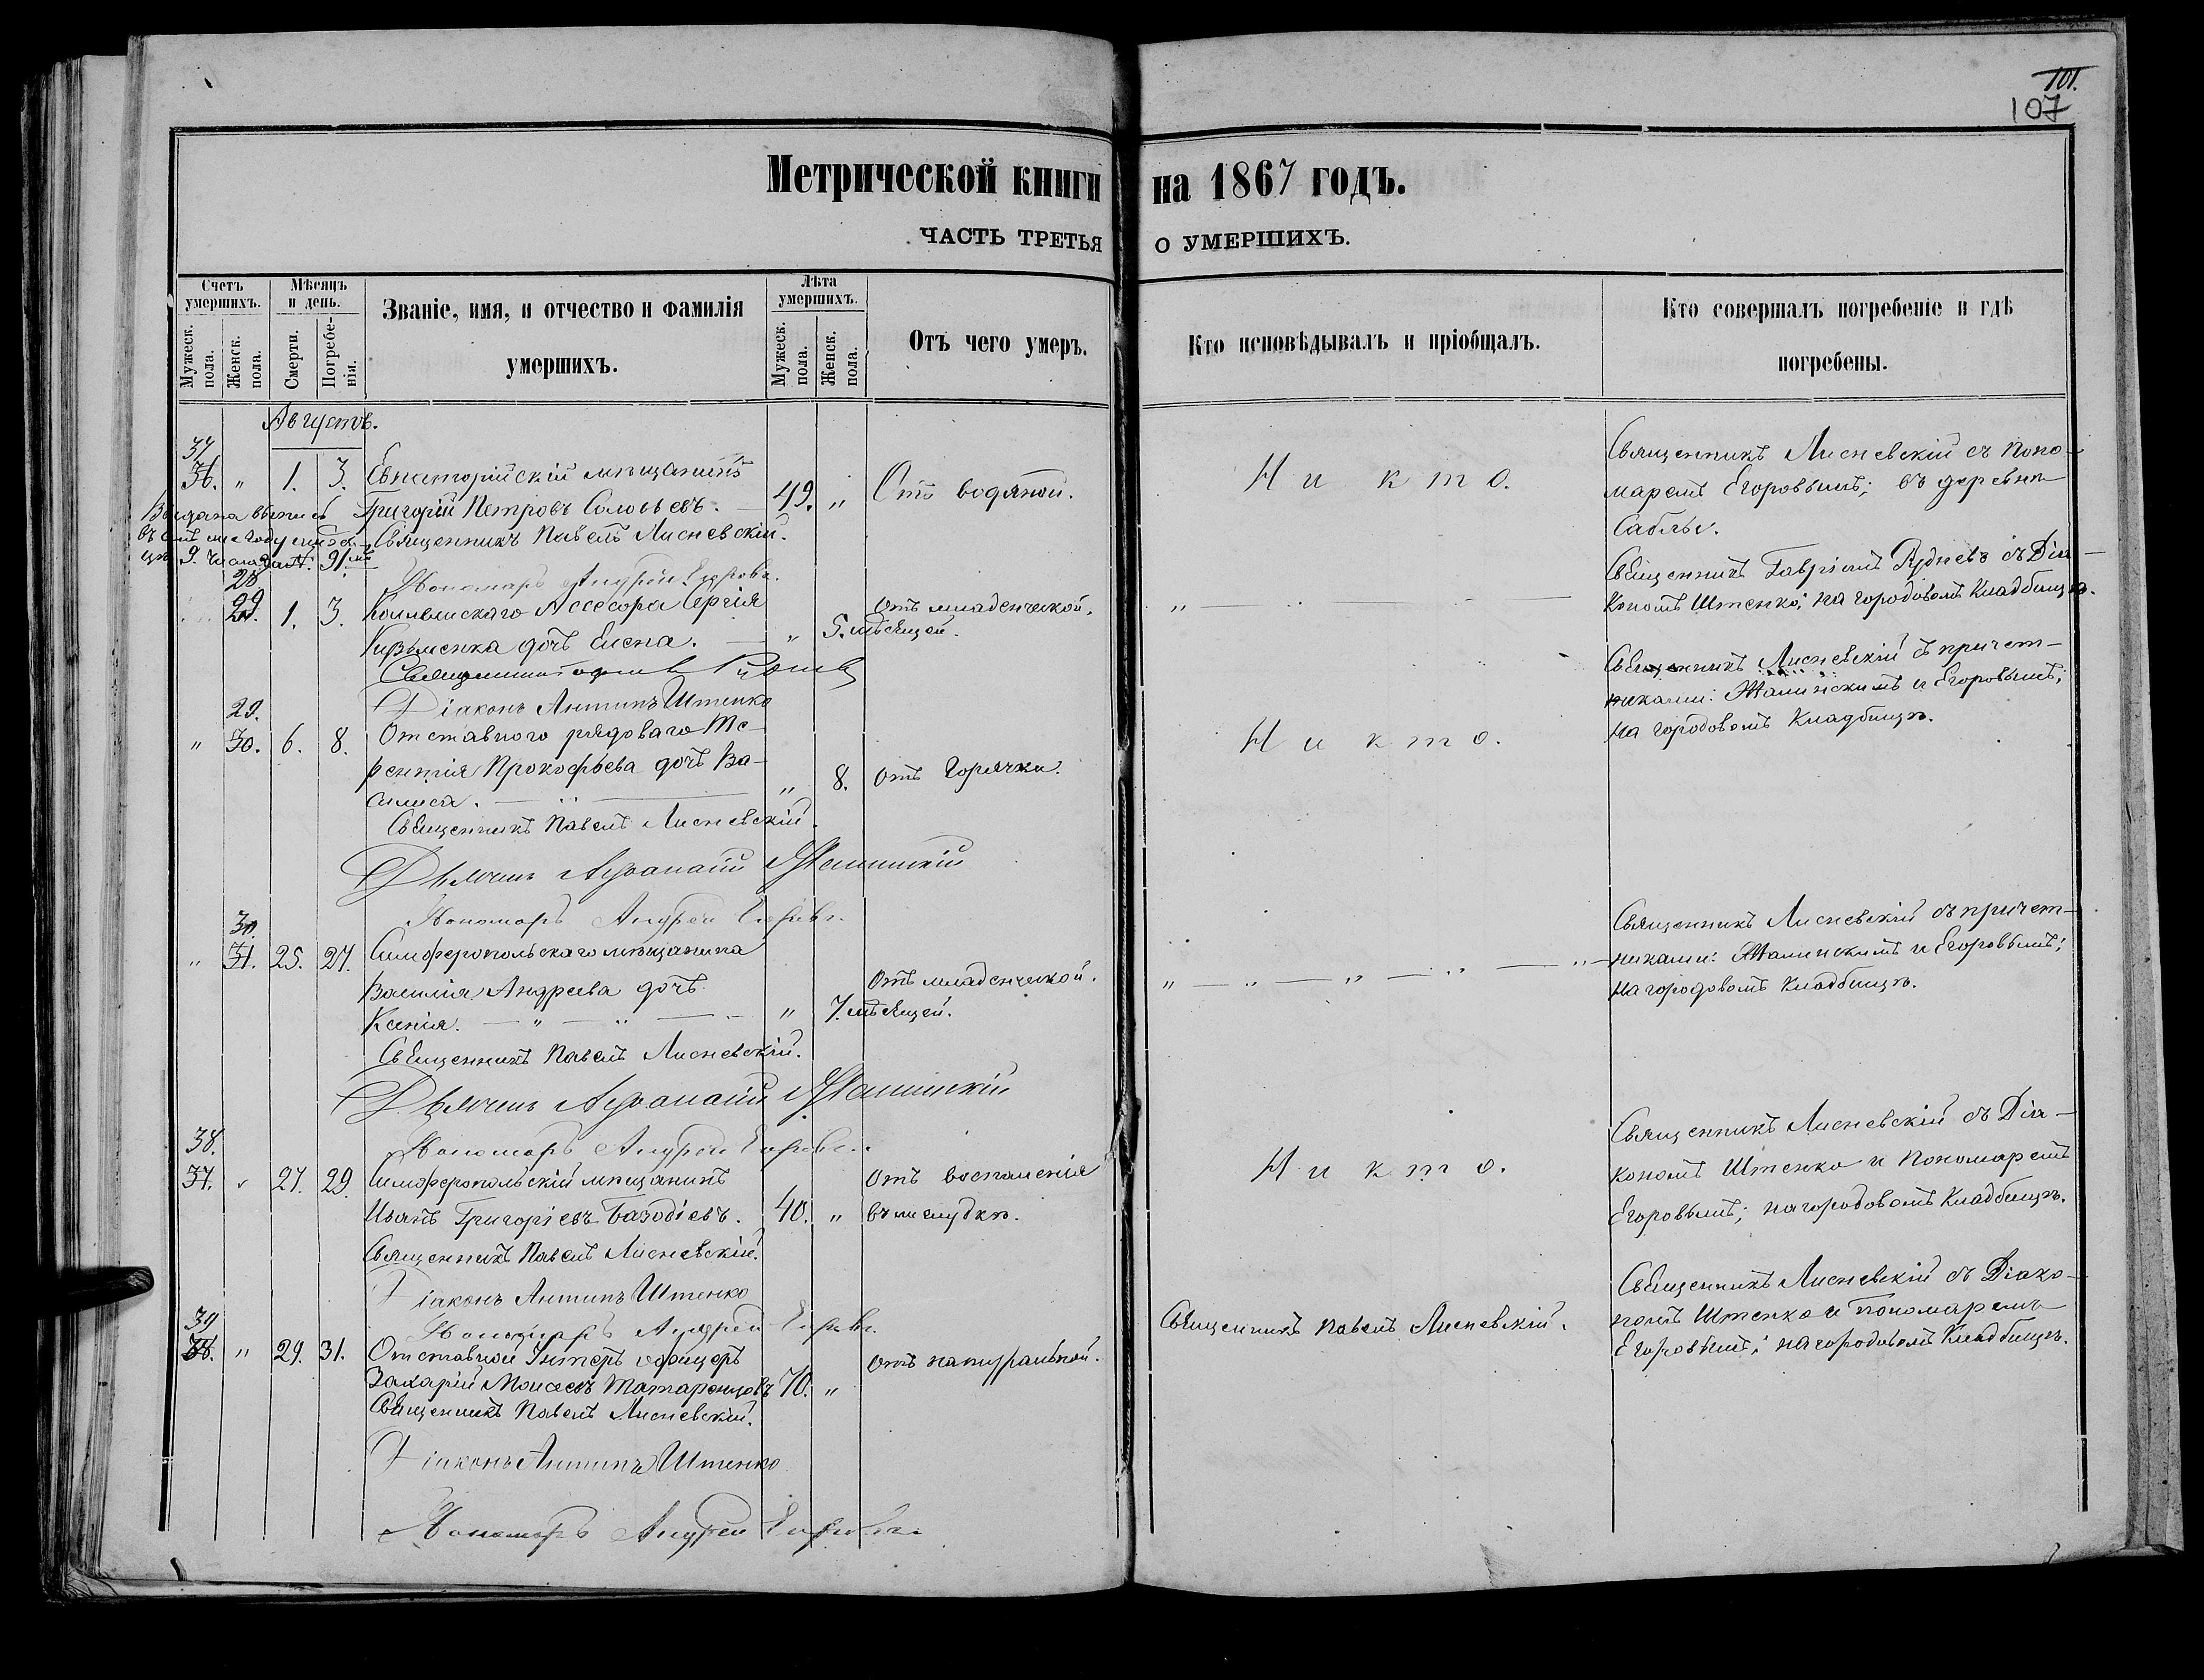 101.
107
Метрической книги на 1867 годъ.
ЧАСТЬ ТРЕТЬЯ О УМЕРШИХЪ.
Счетъ умершихъ.
Мужеск. пола.
Женск. пола.
Мѣсяцъ и день.
Смерти.
Погребенія.
Званіе, имя, и отчество и фамилія
умершихъ.
Лѣта умершихъ.
Мужеск. пола.
Женск. пола.
Отъ чего умеръ.
Кто исповѣдывалъ и пріобщалъ.
Кто совершалъ погребеніе и гдѣ
погребены.
Августъ.
37
36. " 1. 3. Евпаторійскій мѣщанинъ
Григорій Петровъ Соловьевъ. — 49. " Отъ водяной.
Никто.
Священникъ Лисневскій съ поно-
маремъ Егоровымъ; въ деревнѣ
Саблы.
Выдана выпись
Священникъ Павелъ Лисневскій.
Пономарь Андрей Егоровъ.
28
29. 1. 3. Коллежскаго Ассесора Сергія
Кузьменка дочь Елена. — " 5. мѣсяцей.
Отъ младенческой.
Священникъ Гавріилъ Рудневъ съ Діа-
кономъ Штенко; на городовомъ кладбищѣ.
Діаконъ Антипъ Штенко
29.
" 30. 6. 8. Отставного рядоваго Те-
рентія Прокофьева дочь Ва-
силиса. — " 8. Отъ горячки.
Никто.
Священникъ Лисневскій съ причет-
никами: Жалинскимъ и Егоровымъ;
на городовомъ кладбищѣ.
Священникъ Павелъ Лисневскій.
Дьячекъ Афанасій Жалинскій
Пономарь Андрей Егоровъ.
30.
" 31. 25. 27. Симферопольскаго мѣщанина
Василія Андреева дочь
Ксенія. — " — " 7. мѣсяцей.
Отъ младенческой.
" — " — " — "
Священникъ Лисневскій съ причет-
никами: Жалинскимъ и Егоровымъ;
на городовомъ кладбищѣ.
Священникъ Павелъ Лисневскій.
Дьячекъ Афанасій Жалинскій
Пономарь Андрей Егоровъ.
38.
37. " 27. 29. Симферопольскій мѣщанинъ
Иванъ Григоріевъ 40. "
Отъ воспаленія
въ желудкѣ.
Никто.
Священникъ Лисневскій съ Діа-
кономъ Штенко и Пономаремъ
Егоровымъ; на городовомъ кладбищѣ.
Священникъ Павелъ Лисневскій.
Діаконъ Антипъ Штенко
Пономарь Андрей Егоровъ.
39
38. " 29. 31. Отставной Унтеръ офицеръ
Захарій Моисеевъ 70. "
Отъ натуральной.
Священникъ Павелъ Лисневскій.
Священникъ Лисневскій съ Діако-
номъ Штенко и Пономаремъ
Егоровымъ; на городовомъ кладбищѣ.
Священникъ Павелъ Лисневскій.
Діаконъ Антипъ Штенко
Пономарь Андрей Егоровъ.